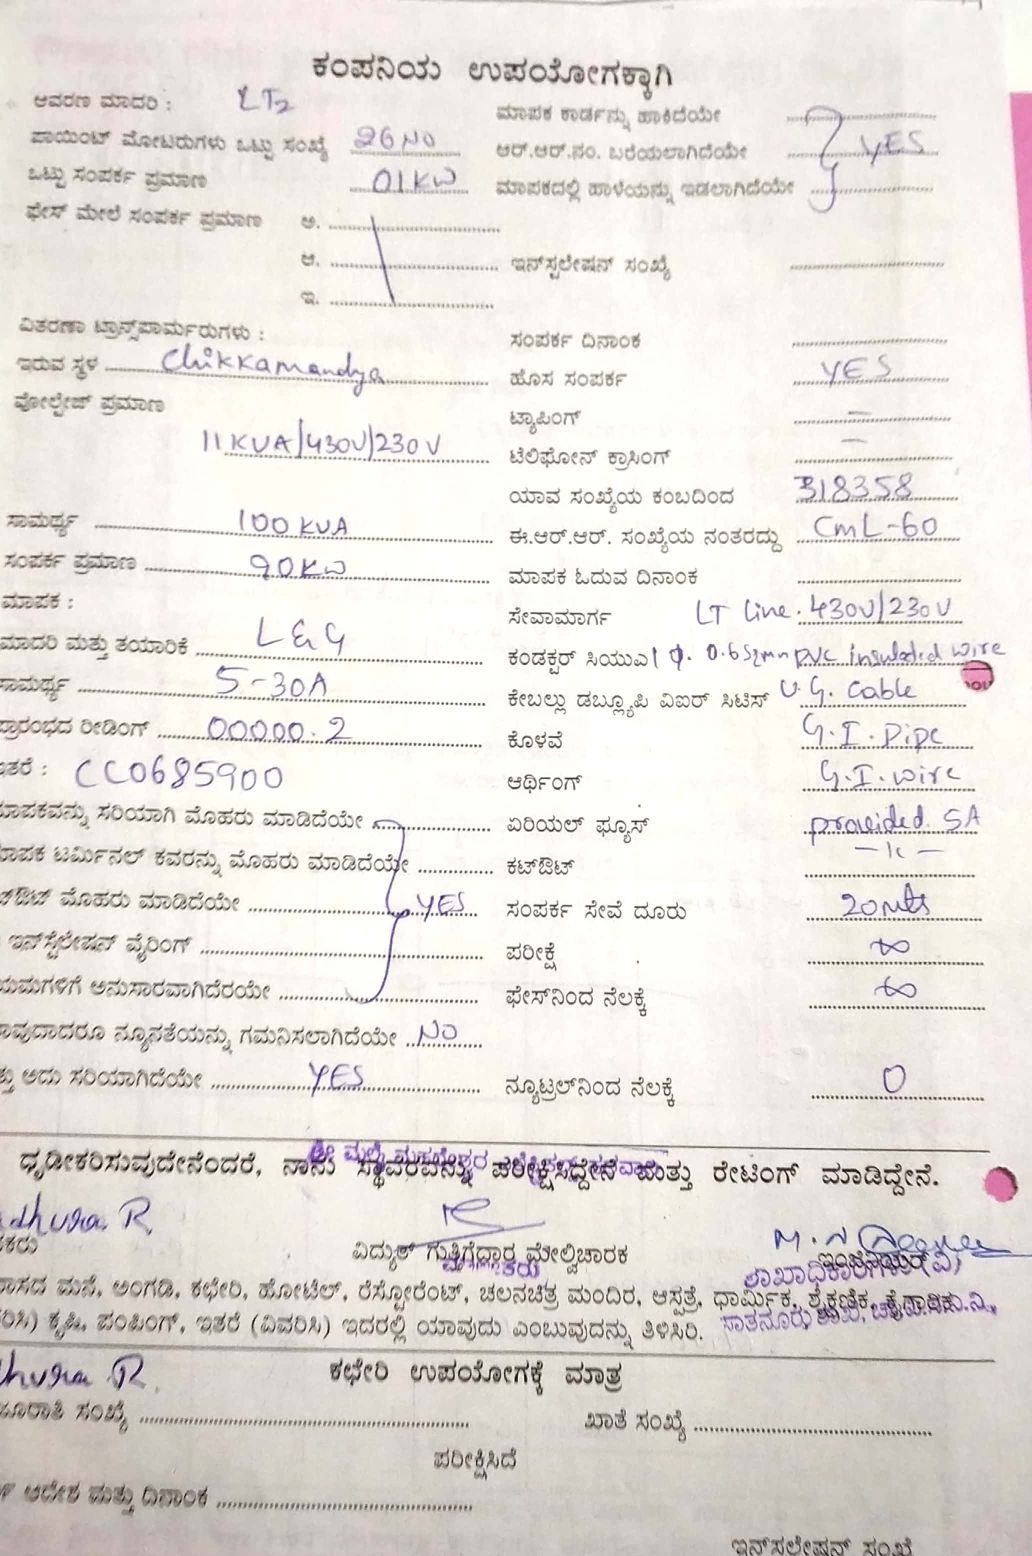 ಕಂಪನಿಯ ಉಪಯೋಗಕ್ಕಾಗಿ
ಆವರಣ ಮಾದರಿ : LT2
ಮಾಪಕ ಕಾರ್ಡನ್ನು ಹಾಕಿದೆಯೇ
ಪಾಯಿಂಟ್ ಮೋಟರುಗಳು ಒಟ್ಟು ಸಂಖ್ಯೆ 26 No
ಆರ್.ಆರ್.ನಂ. ಬರೆಯಲಾಗಿದೆಯೇ YES
ಒಟ್ಟು ಸಂಪರ್ಕ ಪ್ರಮಾಣ 01 KW
ಮಾಪಕದಲ್ಲಿ ಹಾಳೆಯನ್ನು ಇಡಲಾಗಿದೆಯೇ
ಫೇಸ್ ಮೇಲೆ ಸಂಪರ್ಕ ಪ್ರಮಾಣ ಅ.
ಆ.
ಇನ್‌ಸ್ಪಲೇಷನ್ ಸಂಖ್ಯೆ
ಇ.
ವಿತರಣಾ ಟ್ರಾನ್ಸ್‌ಪಾರ್ಮರುಗಳು :
ಸಂಪರ್ಕ ದಿನಾಂಕ
ಇರುವ ಸ್ಥಳ Chikkamandya
ಹೊಸ ಸಂಪರ್ಕ YES
ವೋಲ್ಟೇಜ್ ಪ್ರಮಾಣ
ಟ್ಯಾಪಿಂಗ್ —
11 KVA/430V/230V
ಟೆಲಿಫೋನ್ ಕ್ರಾಸಿಂಗ್ —
ಯಾವ ಸಂಖ್ಯೆಯ ಕಂಬದಿಂದ 318358
ಸಾಮರ್ಥ್ಯ 100 KVA
ಈ.ಆರ್.ಆರ್. ಸಂಖ್ಯೆಯ ನಂತರದ್ದು CML-60
ಸಂಪರ್ಕ ಪ್ರಮಾಣ 90 KW
ಮಾಪಕ ಓದುವ ದಿನಾಂಕ
ಮಾಪಕ :
ಸೇವಾಮಾರ್ಗ LT Line. 430V/230V
ಮಾದರಿ ಮತ್ತು ತಯಾರಿಕೆ L&G
ಕಂಡಕ್ಟರ್ ಸಿಯುಎ 1 φ. PVC insulated wire
ಸಾಮರ್ಥ್ಯ 5-30A
ಕೇಬಲ್ಲು ಡಬ್ಲ್ಯೂಪಿ ವಿಐರ್ ಸಿಟಿಸ್ U.G. Cable
ಪ್ರಾರಂಭದ ರೀಡಿಂಗ್ 00000.2
ಕೊಳವೆ G.I. Pipe
ಇತರೆ : CC0685900
ಆರ್ಥಿಂಗ್ G.I. wire
ಮಾಪಕವನ್ನು ಸರಿಯಾಗಿ ಮೊಹರು ಮಾಡಿದೆಯೇ
ಏರಿಯಲ್ ಫ್ಯೂಸ್ provided. 5A
ಮಾಪಕ ಟರ್ಮಿನಲ್ ಕವರನ್ನು ಮೊಹರು ಮಾಡಿದೆಯೇ
ಕಟ್‌ಔಟ್
ಕಟ್‌ಔಟ್ ಮೊಹರು ಮಾಡಿದೆಯೇ YES
ಸಂಪರ್ಕ ಸೇವೆ ದೂರು 20 mts
ಇನ್‌ಸ್ಪೆಲೇಷನ್ ವೈರಿಂಗ್
ಪರೀಕ್ಷೆ ∞
ಅನುಸಾರವಾಗಿದೆರಯೇ
ಫೇಸ್‌ನಿಂದ ನೆಲಕ್ಕೆ ∞
ನ್ಯೂನತೆಯನ್ನು ಗಮನಿಸಲಾಗಿದೆಯೇ NO
ಅದು ಸರಿಯಾಗಿದೆಯೇ YES
ನ್ಯೂಟ್ರಲ್‌ನಿಂದ ನೆಲಕ್ಕೆ 0
ಧೃಡೀಕರಿಸುವುದೇನೆಂದರೆ, ನಾನು ಸ್ಥಾವರವನ್ನು ಪರೀಕ್ಷಿಸಿದ್ದೇನೆ ಮತ್ತು ರೇಟಿಂಗ್ ಮಾಡಿದ್ದೇನೆ.
ವಿದ್ಯುತ್ ಗುತ್ತಿಗೆದ್ದಾರ ಮೇಲ್ವಿಚಾರಕ
ಇಂಜಿನಿಯರ್
ವಾಸದ ಮನೆ, ಅಂಗಡಿ, ಕಛೇರಿ, ಹೋಟೆಲ್, ರೆಸ್ಟೋರೆಂಟ್, ಚಲನಚಿತ್ರ ಮಂದಿರ, ಆಸ್ಪತ್ರೆ, ಧಾರ್ಮಿಕ, ಶೈಕ್ಷಣಿಕ, ಕೈಗಾರಿಕಾ
ಕೃಷಿ, ಪಂಪಿಂಗ್, ಇತರೆ (ವಿವರಿಸಿ) ಇದರಲ್ಲಿ ಯಾವುದು ಎಂಬುವುದನ್ನು ತಿಳಿಸಿರಿ.
ಕಛೇರಿ ಉಪಯೋಗಕ್ಕೆ ಮಾತ್ರ
ಸಂಖ್ಯೆ
ಖಾತೆ ಸಂಖ್ಯೆ
ಪರೀಕ್ಷಿಸಿದೆ
ಆದೇಶ ಮತ್ತು ದಿನಾಂಕ
ಇನ್‌ಸಲೇಷನ್ ಸಂಖ್ಯೆ